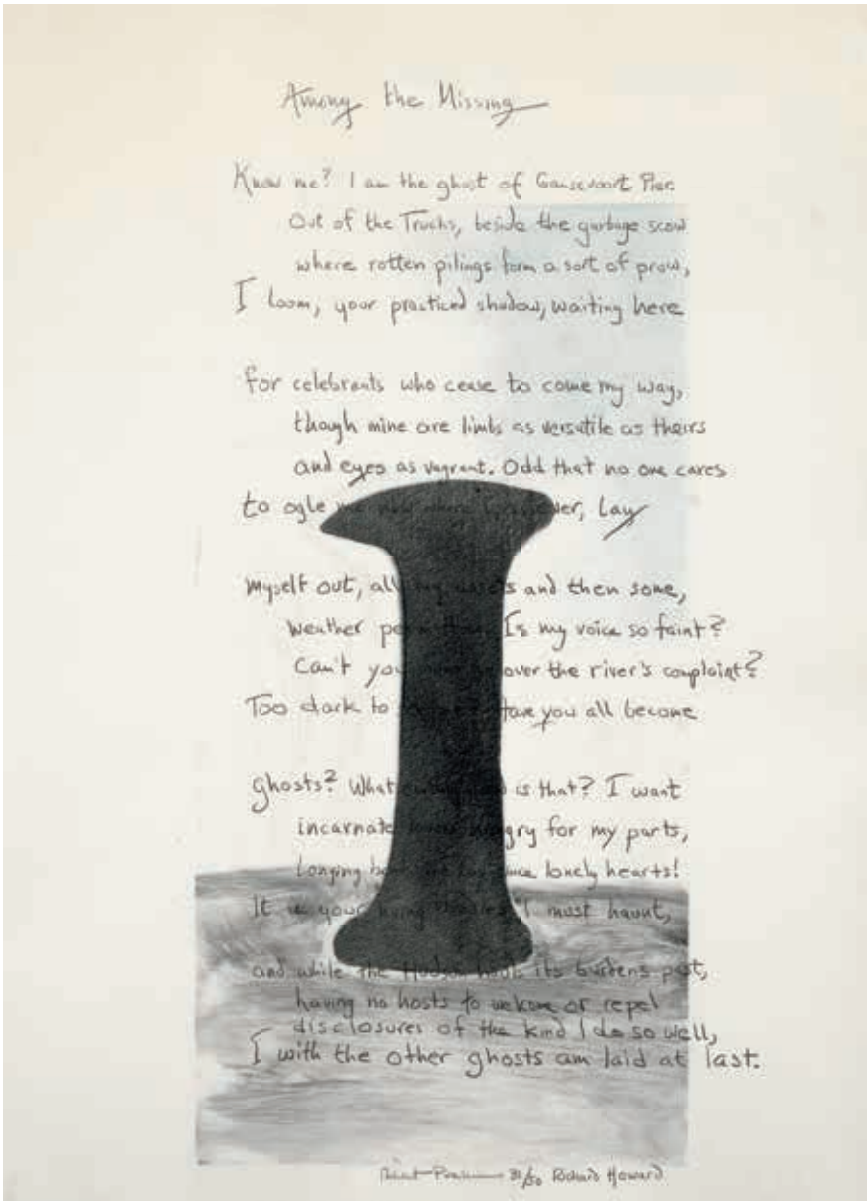 Among the Missing
Know me? I am the ghost of Gansevoort Pier.
Out of the Trucks, beside the garbage scow
where rotten pilings form a sort of prow,
I loom, your practiced shadow, waiting here
for celebrants who cease to come my way,
though mine are limbs as versatile as theirs
and eyes as vagrant. Odd that no one cares
to ogle me now where I, as ever, lay
myself out, all my assets and then some,
weather permitting. Is my voice so faint?
Can't you over the river's complaint?
Too dark to Have you all become
ghosts? What is that? I want
incarnate hungry for my parts,
longing lonely hearts!
It is your living I must haunt,
and while the Hudson hauls its burdens past,
having no hosts to welcome or repel
disclosures of the kind I do so well,
I with the other ghosts am laid at last.
31/50 Richard Howard